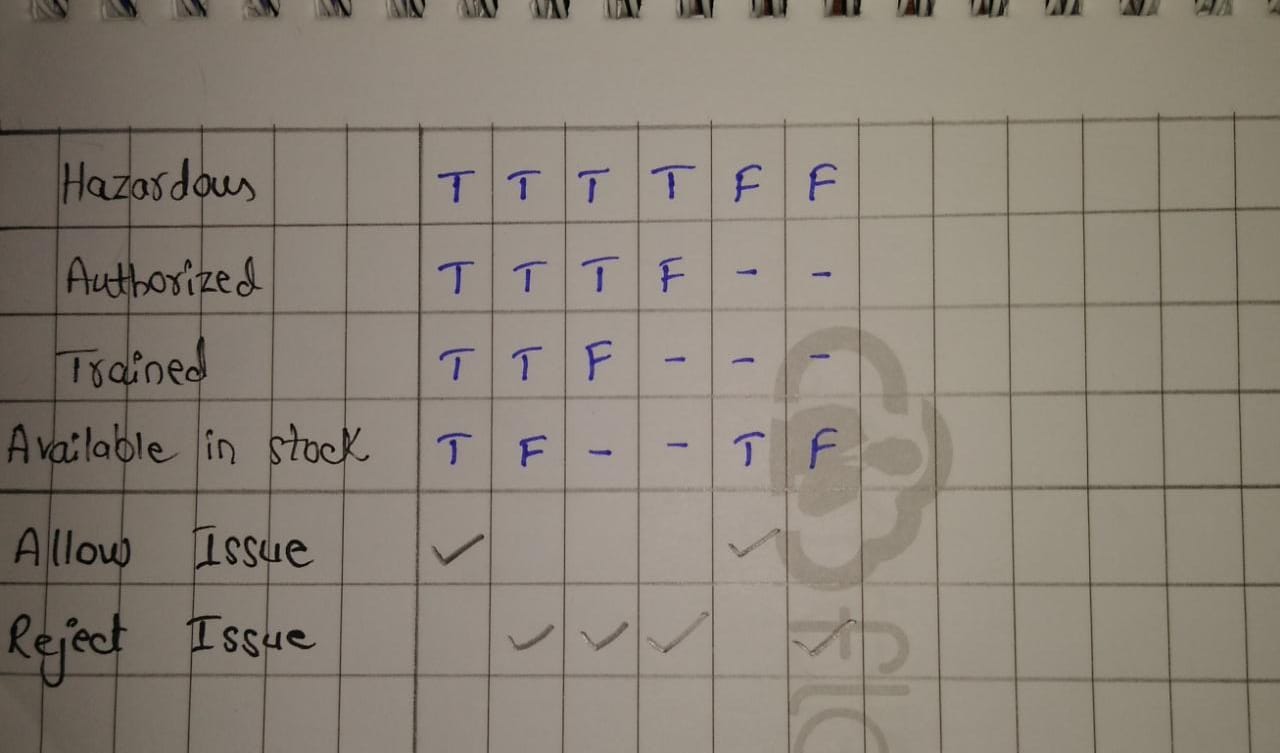 Hazardous T T T T F F
Authorized T T T F - -
Trained T T F - - -
Available in stock T F - - T F
Allow Issue ✓ ✓
Reject Issue ✓ ✓ ✓ ✓